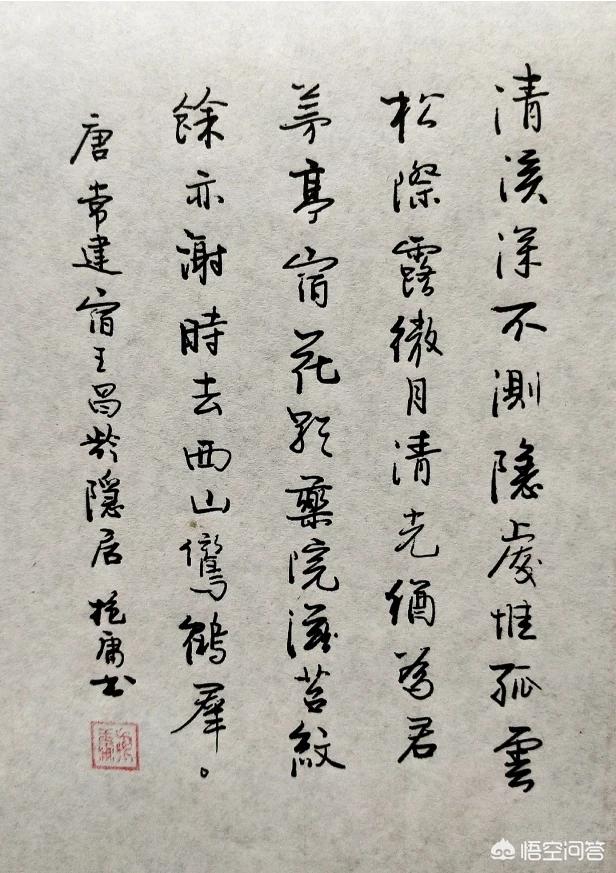 清溪深不測隱處惟孤雲
松際露微月清光猶為君
茅亭宿花影藥院滋苔紋
餘亦謝時去西山鸞鶴羣。
唐常建宿王昌齡隱居 庸书
悟空问答